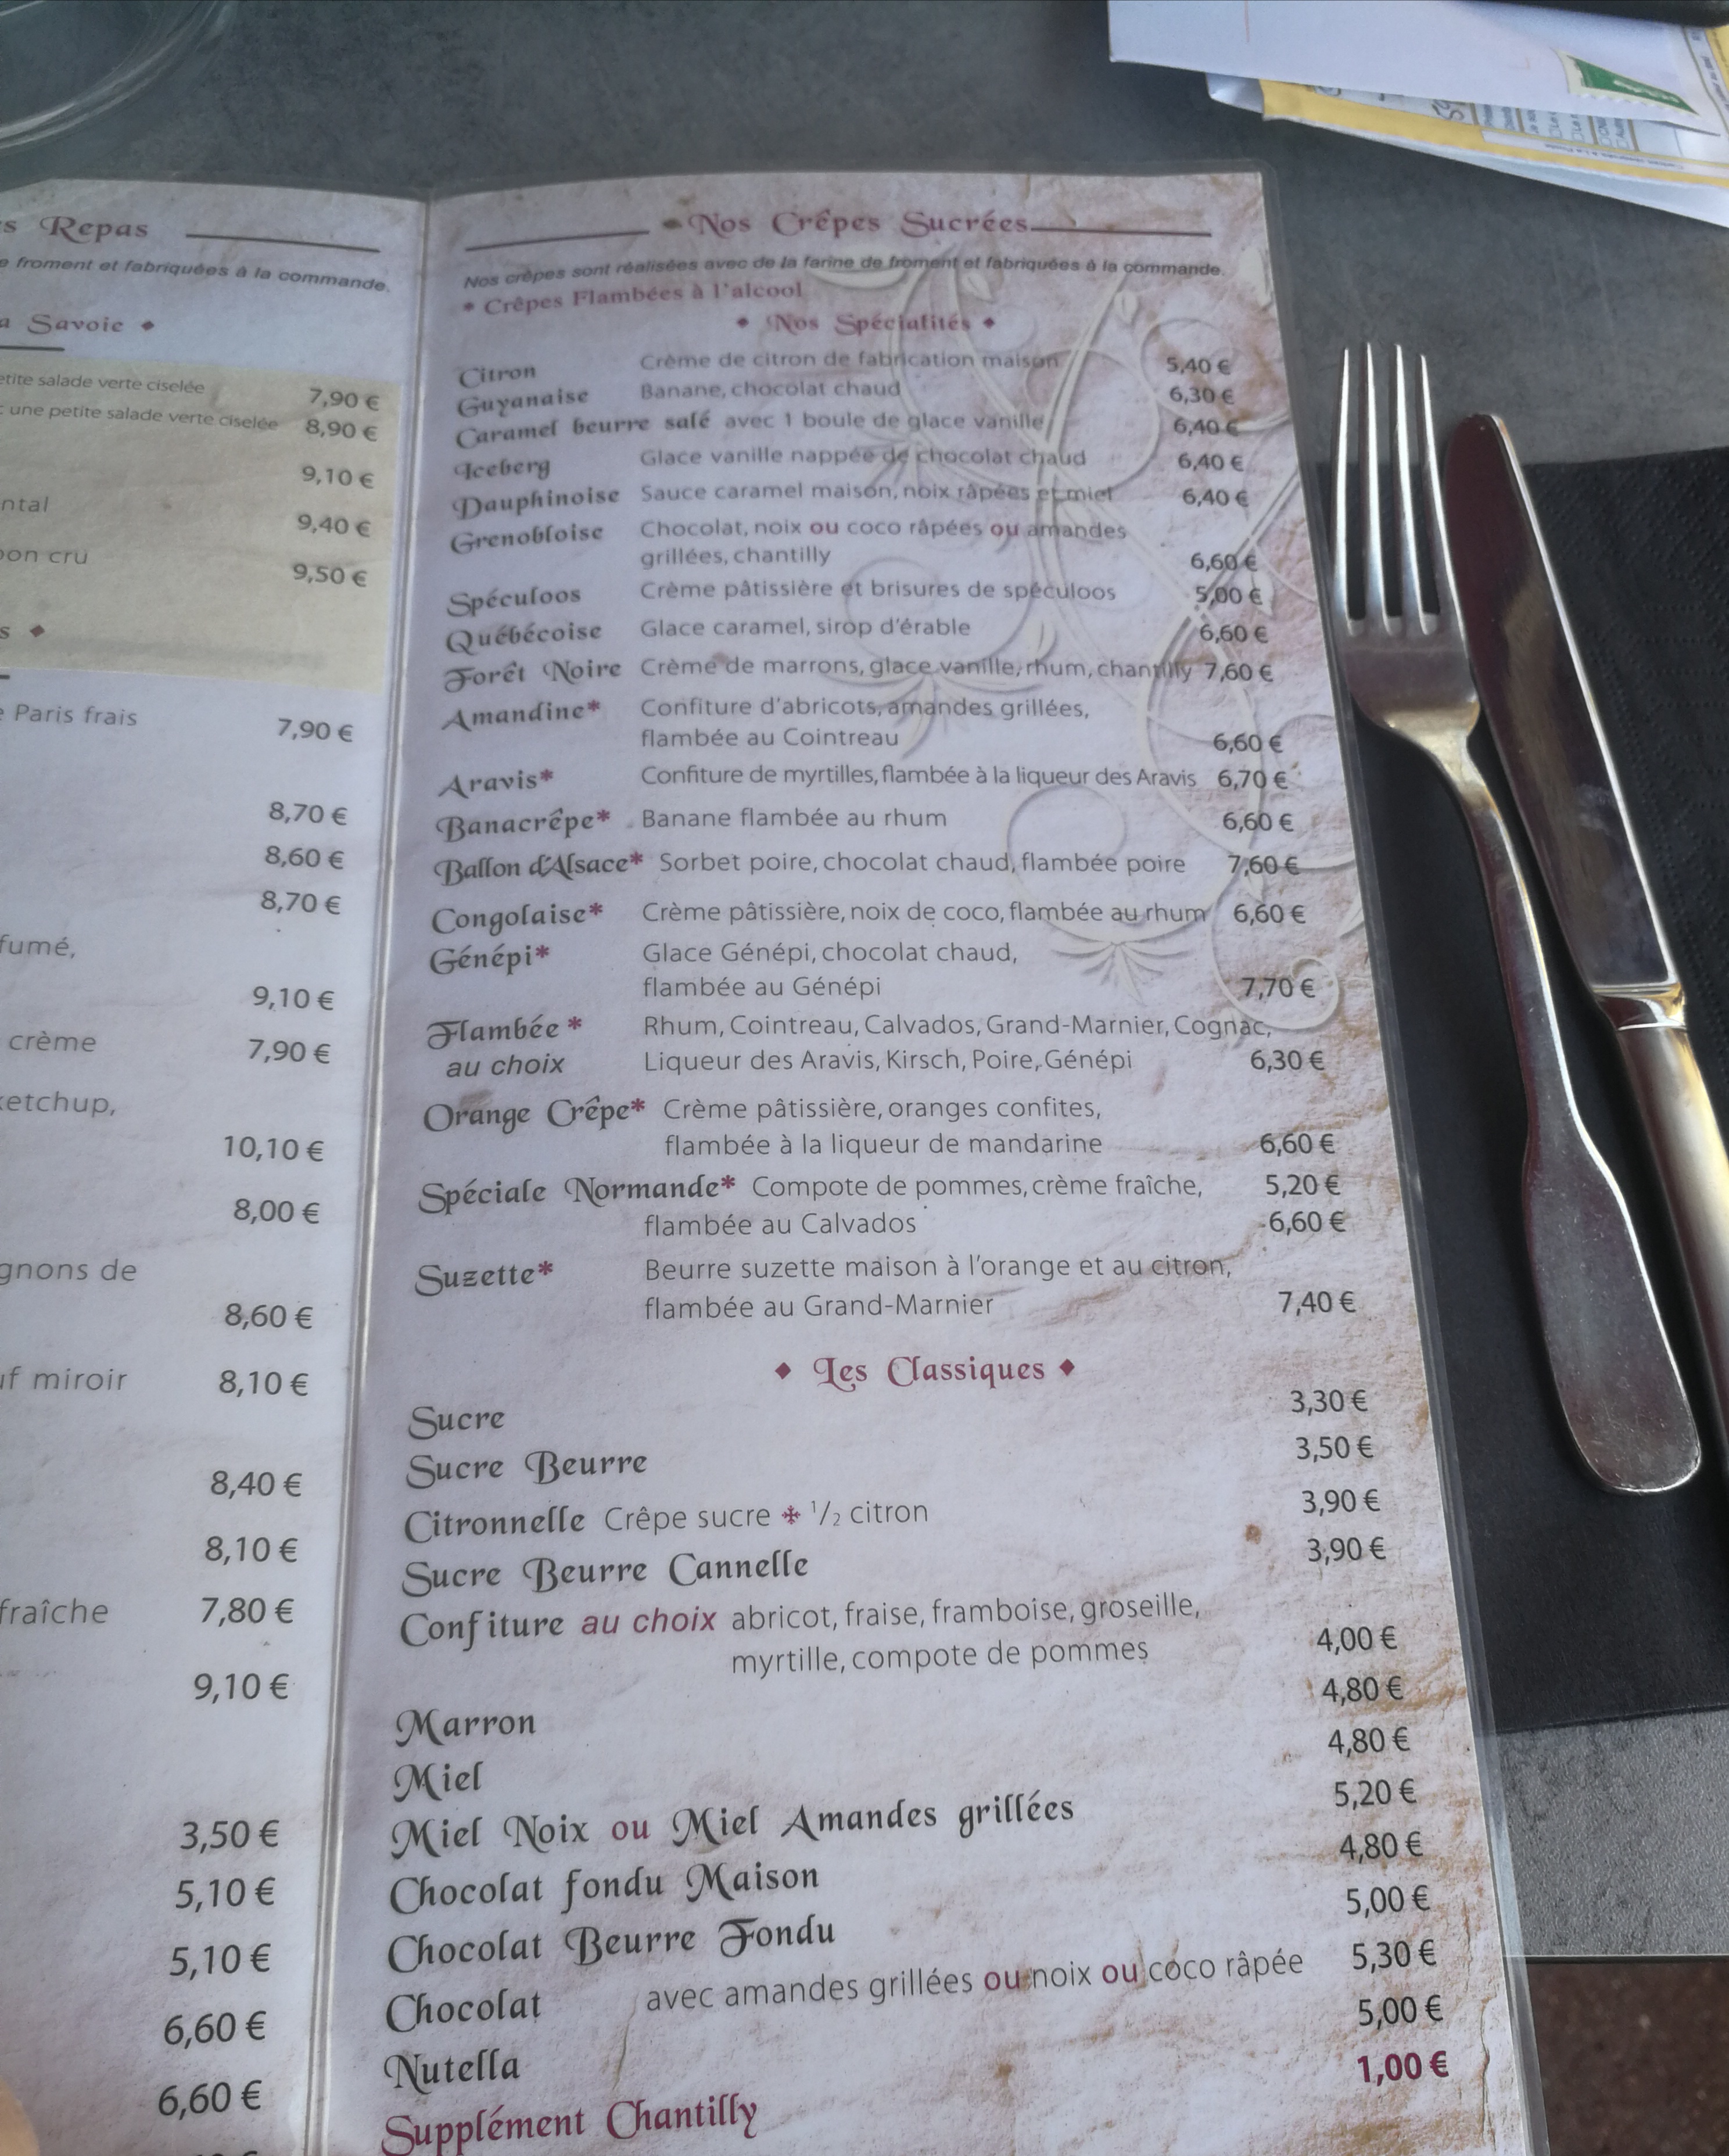 s Repas
e froment et fabriquées à la commande.
a Savoie
petite salade verte ciselée 7,90 €
une petite salade verte ciselée 8,90 €
9,10 €
ntal
9,40 €
on cru
9,50 €
s
Paris frais
7,90 €
8,70 €
8,60 €
8,70 €
fumé,
9,10 €
crème
7,90 €
ketchup,
10,10 €
8,00 €
gnons de
8,60 €
uf miroir 8,10 €
8,40 €
8,10 €
fraîche 7,80 €
9,10 €
3,50 €
5,10 €
5,10 €
6,60 €
6,60 €
Nos Crêpes Sucrées
Nos crêpes sont réalisées avec de la farine de froment et fabriquées à la commande.
* Crêpes Flambées à l'alcool
♦ Nos Spécialités ♦
Citron Crème de citron de fabrication maison 5,40 €
Guyanaise Banane, chocolat chaud 6,30 €
Caramel beurre salé avec 1 boule de glace vanille 6,40 €
Iceberg Glace vanille nappée de chocolat chaud 6,40 €
Dauphinoise Sauce caramel maison, noix râpées et miel 6,40 €
Grenobloise Chocolat, noix ou coco râpées ou amandes
grillées, chantilly 6,60 €
Spéculoos Crème pâtissière et brisures de spéculoos 5,00 €
Québécoise Glace caramel, sirop d'érable 6,60 €
Forêt Noire Crème de marrons, glace vanille, rhum, chantilly 7,60 €
Amandine* Confiture d'abricots, amandes grillées,
flambée au Cointreau 6,60 €
Aravis* Confiture de myrtilles, flambée à la liqueur des Aravis 6,70 €
Banacrêpe* Banane flambée au rhum 6,60 €
Ballon d'Alsace* Sorbet poire, chocolat chaud, flambée poire 7,60 €
Congolaise* Crème pâtissière, noix de coco, flambée au rhum 6,60 €
Génépi* Glace Génépi, chocolat chaud,
flambée au Génépi 7,70 €
Flambée * Rhum, Cointreau, Calvados, Grand-Marnier, Cognac,
au choix Liqueur des Aravis, Kirsch, Poire, Génépi 6,30 €
Orange Crêpe* Crème pâtissière, oranges confites,
flambée à la liqueur de mandarine 6,60 €
Spéciale Normande* Compote de pommes, crème fraîche, 5,20 €
flambée au Calvados 6,60 €
Suzette* Beurre suzette maison à l'orange et au citron,
flambée au Grand-Marnier 7,40 €
♦ Les Classiques ♦
Sucre 3,30 €
Sucre Beurre 3,50 €
Citronnelle Crêpe sucre + 1/2 citron 3,90 €
Sucre Beurre Cannelle 3,90 €
Confiture au choix abricot, fraise, framboise, groseille,
myrtille, compote de pommes 4,00 €
Marron 4,80 €
Miel 4,80 €
Miel Noix ou Miel Amandes grillées 5,20 €
Chocolat fondu Maison 4,80 €
Chocolat Beurre Fondu 5,00 €
Chocolat avec amandes grillées ou noix ou coco râpée 5,30 €
Nutella 5,00 €
Supplément Chantilly 1,00 €